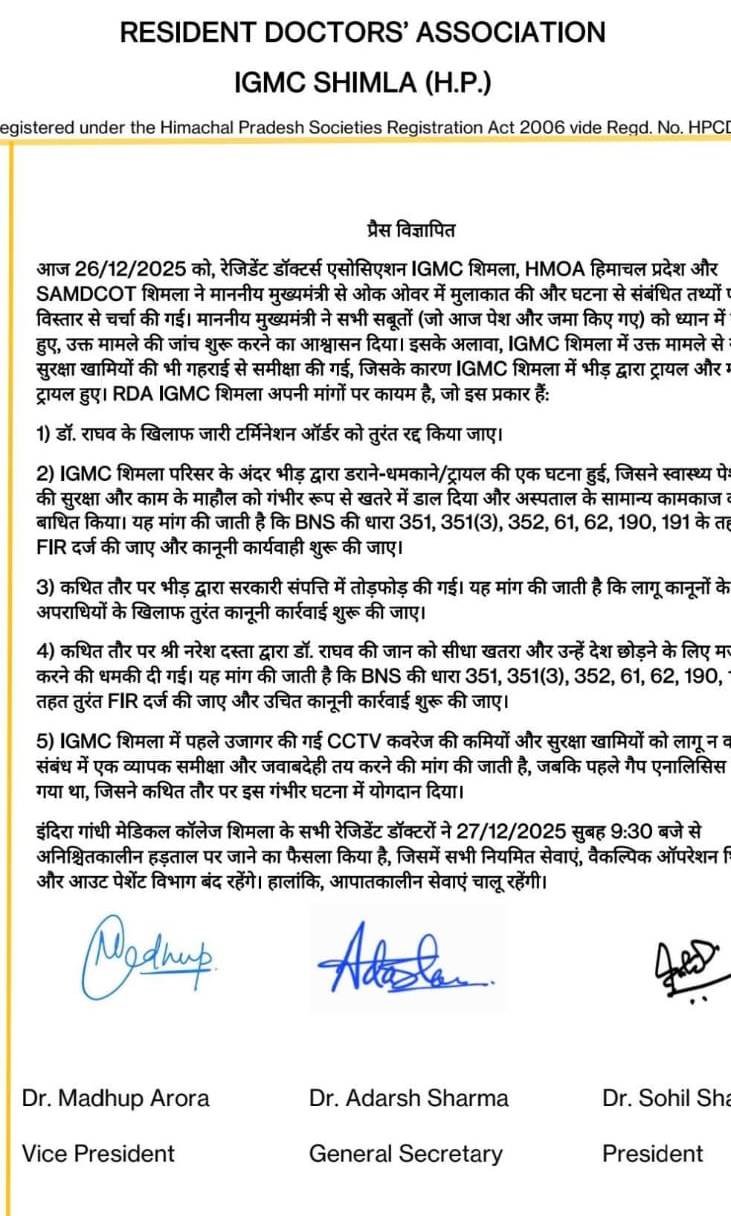 RESIDENT DOCTORS' ASSOCIATION
IGMC SHIMLA (H.P.)
egistered under the Himachal Pradesh Societies Registration Act 2006 vide Regd. No. HPCD
प्रैस विज्ञापित
आज 26/12/2025 को, रेजिडेंट डॉक्टर्स एसोसिएशन IGMC शिमला, HMOA हिमाचल प्रदेश और
SAMDCOT शिमला ने माननीय मुख्यमंत्री से ओक ओवर में मुलाकात की और घटना से संबंधित तथ्यों
विस्तार से चर्चा की गई। माननीय मुख्यमंत्री ने सभी सबूतों (जो आज पेश और जमा किए गए) को ध्यान में
हुए, उक्त मामले की जांच शुरू करने का आश्वासन दिया। इसके अलावा, IGMC शिमला में उक्त मामले से
सुरक्षा खामियों की भी गहराई से समीक्षा की गई, जिसके कारण IGMC शिमला में भीड़ द्वारा ट्रायल और
ट्रायल हुए। RDA IGMC शिमला अपनी मांगों पर कायम है, जो इस प्रकार हैं:
1) डॉ. राघव के खिलाफ जारी टर्मिनेशन ऑर्डर को तुरंत रद्द किया जाए।
2) IGMC शिमला परिसर के अंदर भीड़ द्वारा डराने-धमकाने/ट्रायल की एक घटना हुई, जिसने स्वास्थ्य
की सुरक्षा और काम के माहौल को गंभीर रूप से खतरे में डाल दिया और अस्पताल के सामान्य कामकाज
बाधित किया। यह मांग की जाती है कि BNS की धारा 351, 351(3), 352, 61, 62, 190, 191 के
FIR दर्ज की जाए और कानूनी कार्यवाही शुरू की जाए।
3) कथित तौर पर भीड़ द्वारा सरकारी संपत्ति में तोड़फोड़ की गई। यह मांग की जाती है कि लागू कानूनों के
अपराधियों के खिलाफ तुरंत कानूनी कार्रवाई शुरू की जाए।
4) कथित तौर पर श्री नरेश दस्ता द्वारा डॉ. राघव की जान को सीधा खतरा और उन्हें देश छोड़ने के लिए
करने की धमकी दी गई। यह मांग की जाती है कि BNS की धारा 351, 351(3), 352, 61, 62, 190,
तहत तुरंत FIR दर्ज की जाए और उचित कानूनी कार्रवाई शुरू की जाए।
5) IGMC शिमला में पहले उजागर की गई CCTV कवरेज की कमियों और सुरक्षा खामियों को लागू न
संबंध में एक व्यापक समीक्षा और जवाबदेही तय करने की मांग की जाती है, जबकि पहले गैप एनालिसिस
गया था, जिसने कथित तौर पर इस गंभीर घटना में योगदान दिया।
इंदिरा गांधी मेडिकल कॉलेज शिमला के सभी रेजिडेंट डॉक्टरों ने 27/12/2025 सुबह 9:30 बजे से
अनिश्चितकालीन हड़ताल पर जाने का फैसला किया है, जिसमें सभी नियमित सेवाएं, वैकल्पिक ऑपरेशन
और आउट पेशेंट विभाग बंद रहेंगे। हालांकि, आपातकालीन सेवाएं चालू रहेंगी।
Madhup Adarsh
Dr. Madhup Arora Dr. Adarsh Sharma Dr. Sohil Sha
Vice President General Secretary President